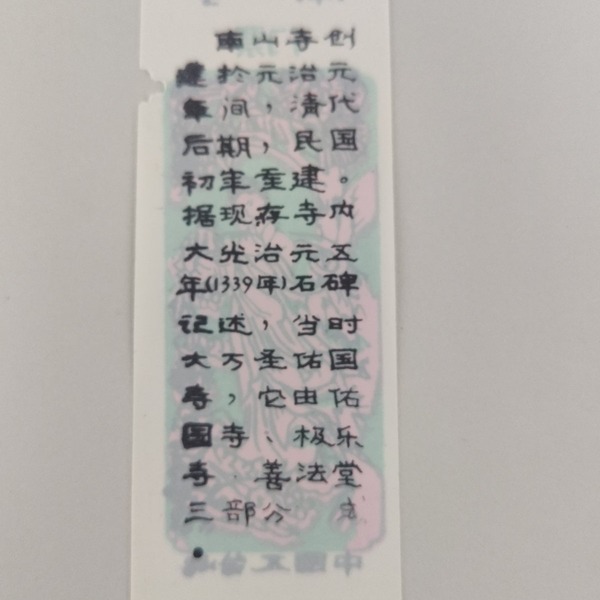 南山寺创
建於元治元
年间，清代
后期，民国
初年重建。
据现存寺内
大光治元五
年(1339年)石碑
记述，当时
大万圣佑国
寺，它由佑
国寺、极乐
寺 善法堂
三部分
。